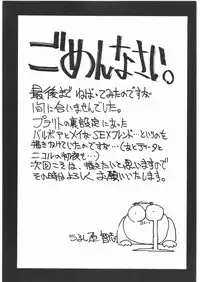 ごめんなさい。
最後まで ねばってみたのですが
間に合いませんでした。
プラリトの裏設定になった
バルボアとメイカーSEXフレンド…というのを
描きかけていたのですが…(あとディータと
ニコルの初夜も…)
次回こそは、描きたいと思いますので
その時はよろしくお願いいたします。